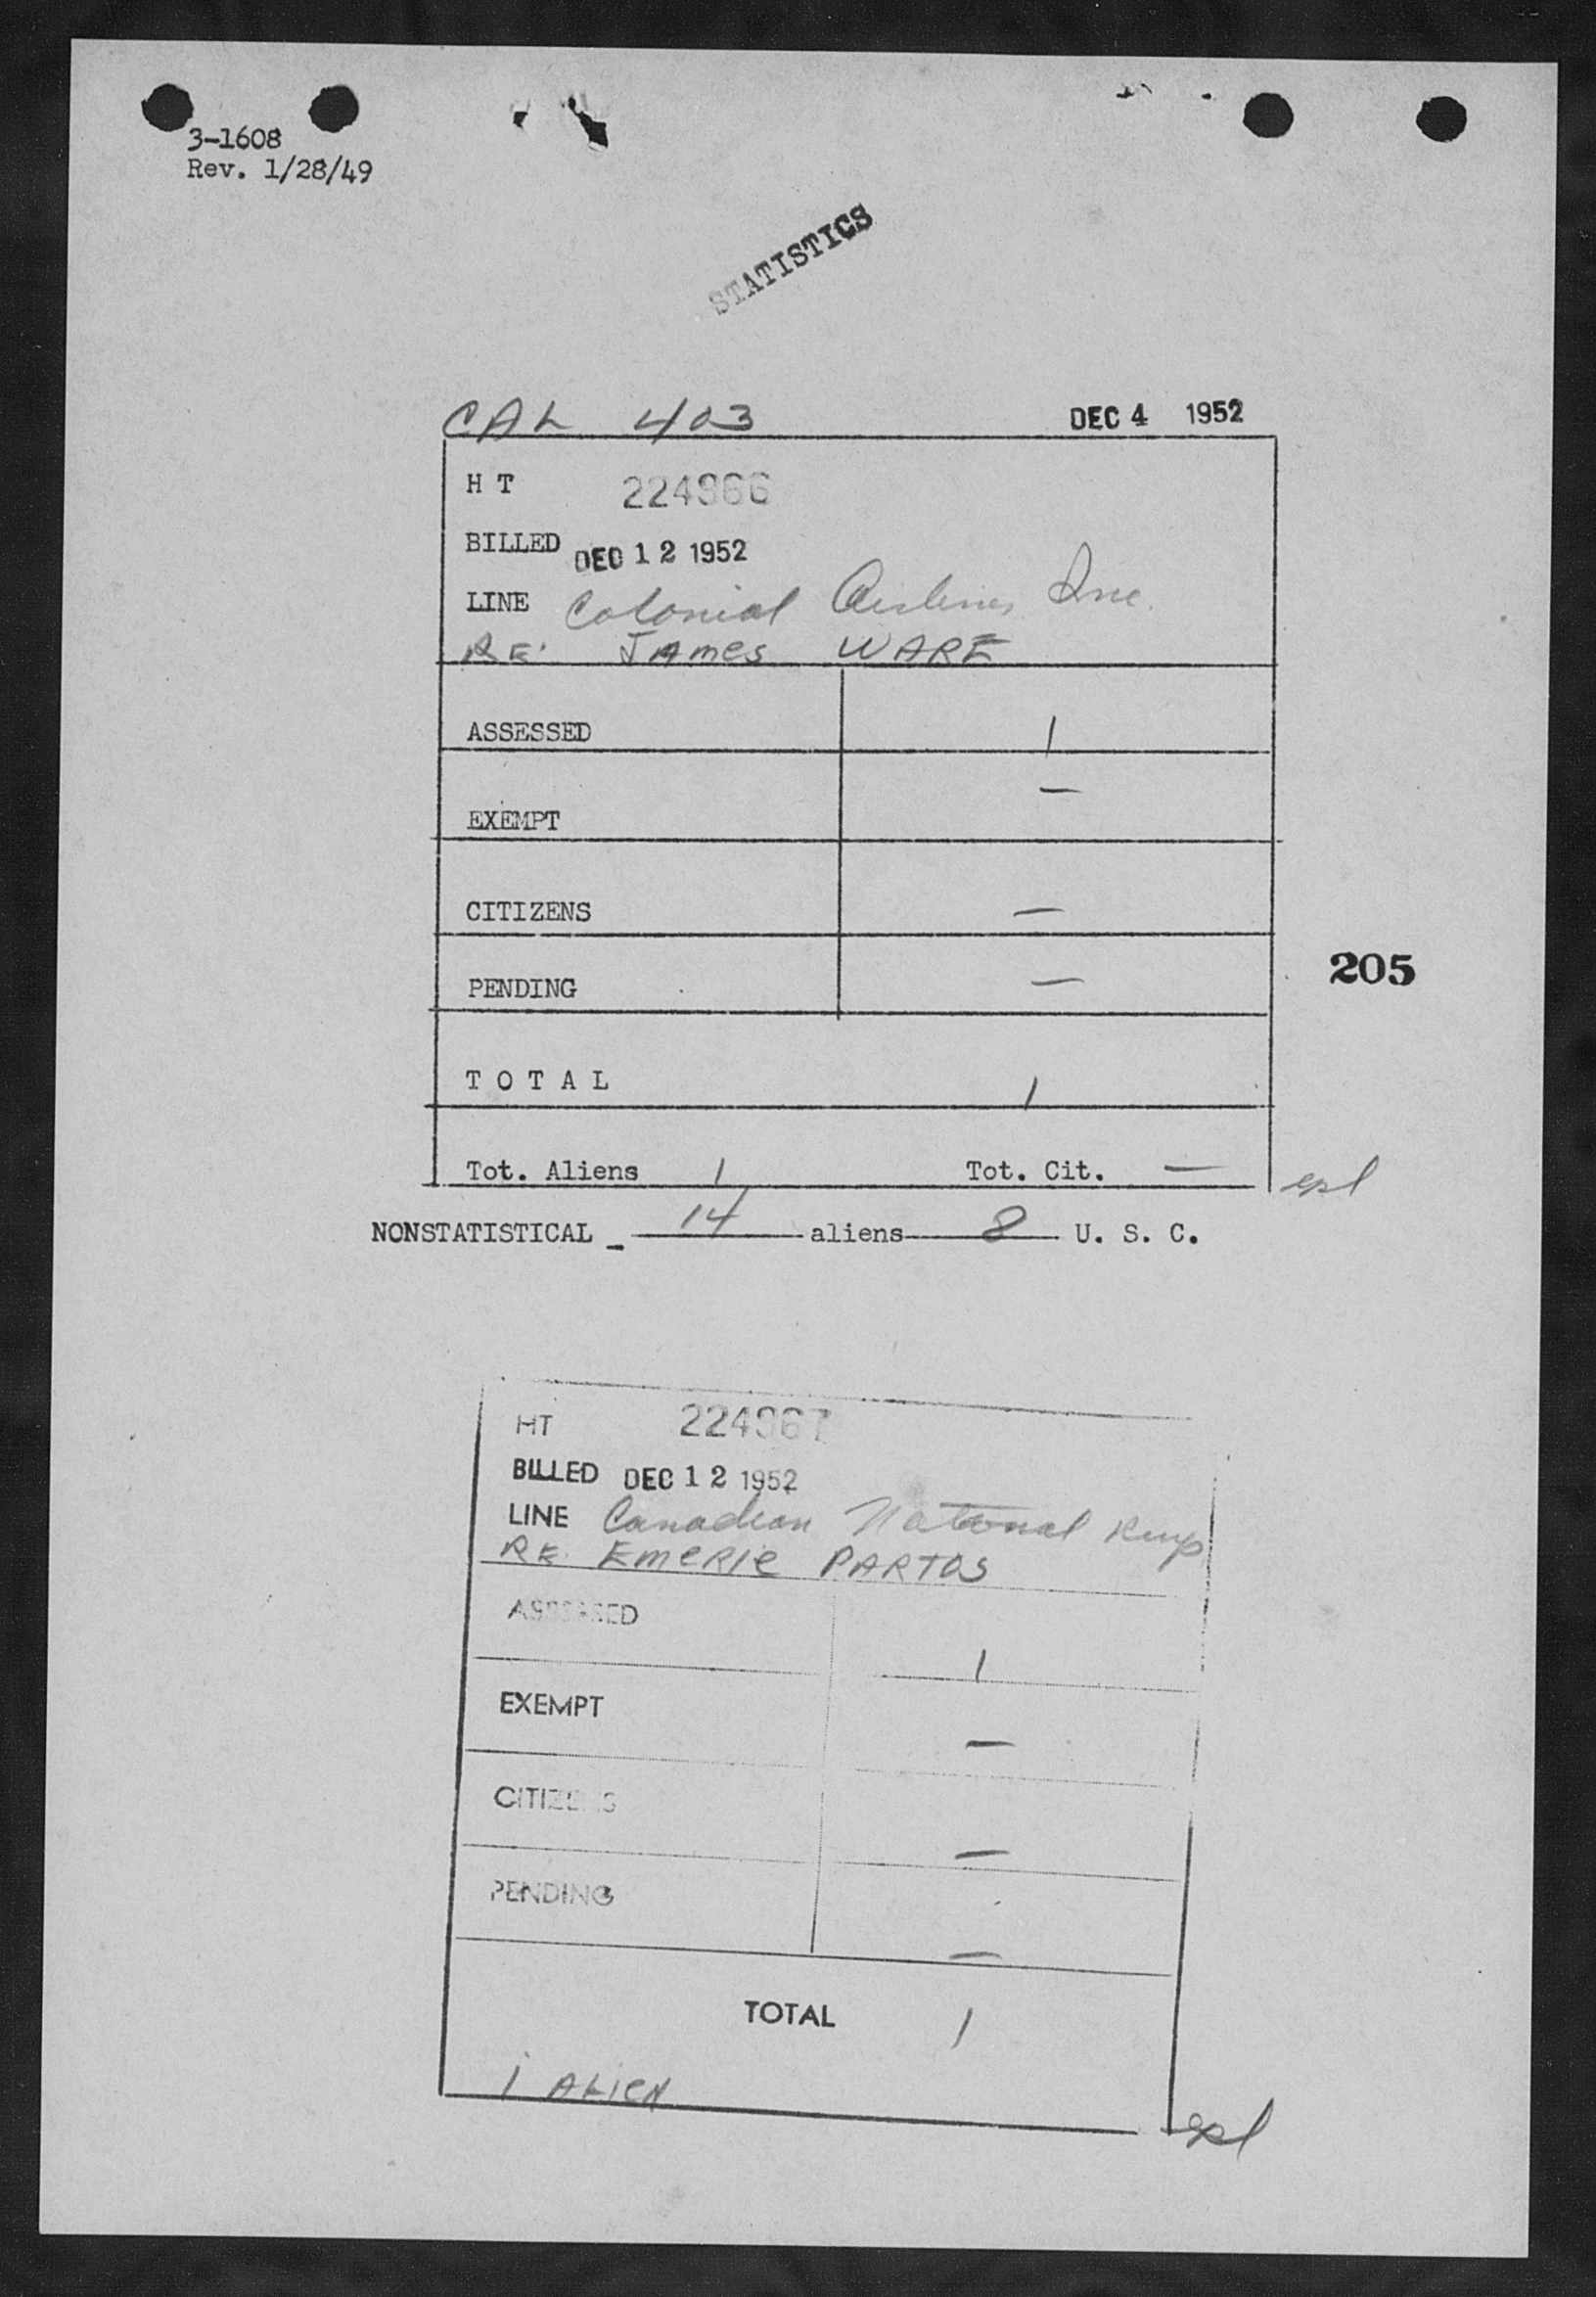 3-1608
Rev. 1/28/49
STATISTICS
CAL 403 DEC 4 1952
H T 224966
BILLED DEC 12 1952
LINE Colonial Airlines Inc.
RE: JAMES WARE
ASSESSED 1
EXEMPT —
CITIZENS —
205
PENDING —
T O T A L 1
Tot. Aliens 1 Tot. Cit. —
NONSTATISTICAL - 14 aliens 8 U. S. C.
HT 224967
BILLED DEC 12 1952
LINE Canadian National
RE. EMERIC PARTOS
ASSESSED 1
EXEMPT —
CITIZENS —
PENDING —
TOTAL 1
1 ALIEN